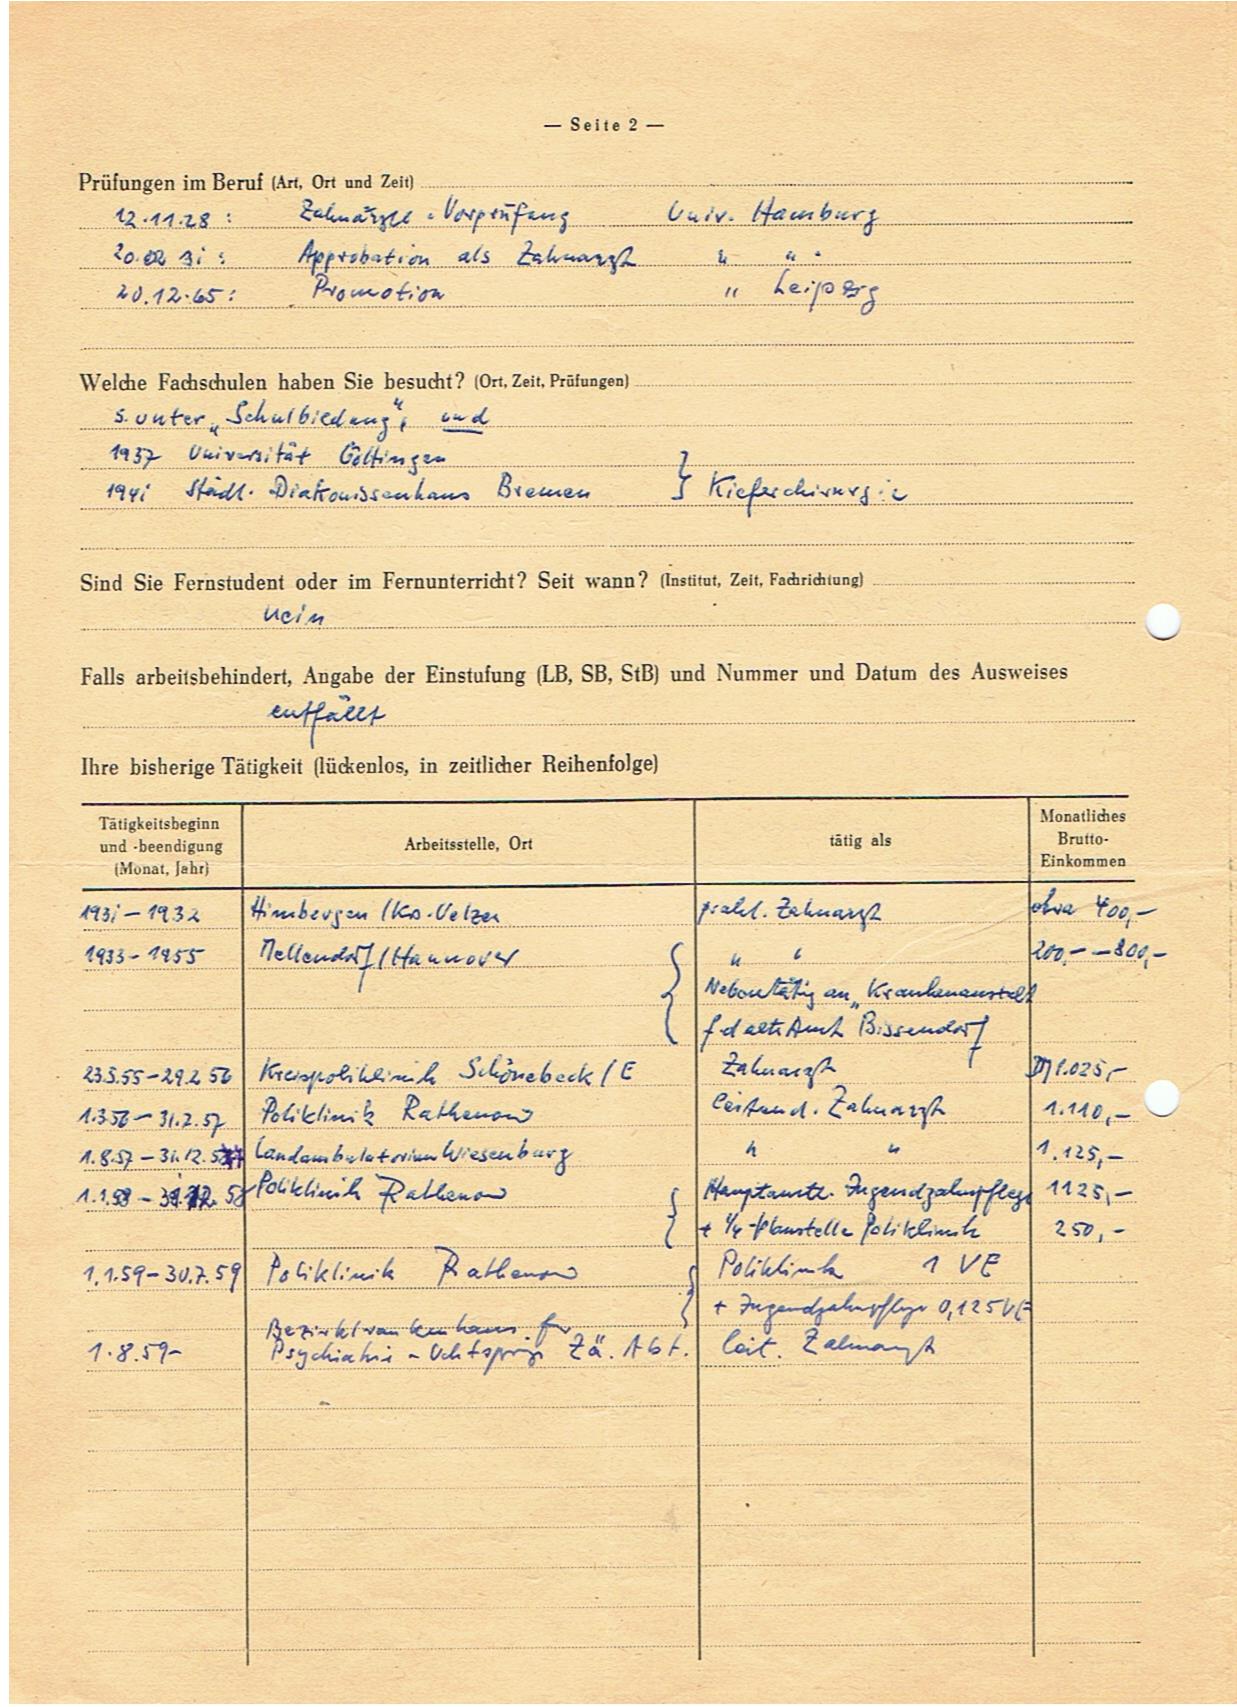 — Seite 2 —
Prüfungen im Beruf (Art, Ort und Zeit)
12.11.28 : Zahnärztl. Vorprüfung Univ. Hamburg
20.02 31 : Approbation als Zahnarzt " "
20.12.65 : Promotion " Leipzig
Welche Fachschulen haben Sie besucht? (Ort, Zeit, Prüfungen)
s. unter „Schulbildung", und
1937 Universität Göttingen
1941 Städt. Diakonissenhaus Bremen } Kieferchirurgie
Sind Sie Fernstudent oder im Fernunterricht? Seit wann? (Institut, Zeit, Fachrichtung)
nein
Falls arbeitsbehindert, Angabe der Einstufung (LB, SB, StB) und Nummer und Datum des Ausweises
entfällt
Ihre bisherige Tätigkeit (lückenlos, in zeitlicher Reihenfolge)
Tätigkeitsbeginn und -beendigung (Monat, Jahr) Arbeitsstelle, Ort tätig als Monatliches Brutto-Einkommen
1931 – 1932 Himbergen / Krs. Uelzen prakt. Zahnarzt etwa 400,–
1933 – 1955 Mellendorf / Hannover { " " 200,– – 800,–
Nebentätig an „Krankenanstalt
f d alte Amt Bissendorf
23.5.55 – 29.2 56 Kreispoliklinik Schönebeck / E Zahnarzt 1.025,–
1.3.56 – 31.7.57 Poliklinik Rathenow leitend. Zahnarzt 1.110,–
1.8.57 – 31.12.57 Landambulatorium Wiesenburg " " 1.125,–
1.1.58 – 31.12.58 Poliklinik Rathenow { Hauptamtl. Jugendzahnpflege 1125,–
+ 1/4 -Planstelle Poliklinik 250,–
1.1.59 – 30.7.59 Poliklinik Rathenow { Poliklinik 1 VE
+ Jugendzahnpflege 0,125 VE
Bezirkkrankenhaus für
1.8.59 – Psychiatrie – Uchtspringe Zä. Abt. leit. Zahnarzt